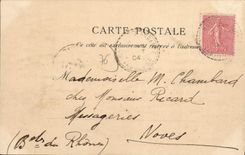 CARTE POSTALE
Ce côté est exclusivement réservé à l'adresse
04
Mademoiselle M. Chambard
chez Monsieur Ricard
Messageries
Noves
(Bch du Rhône)